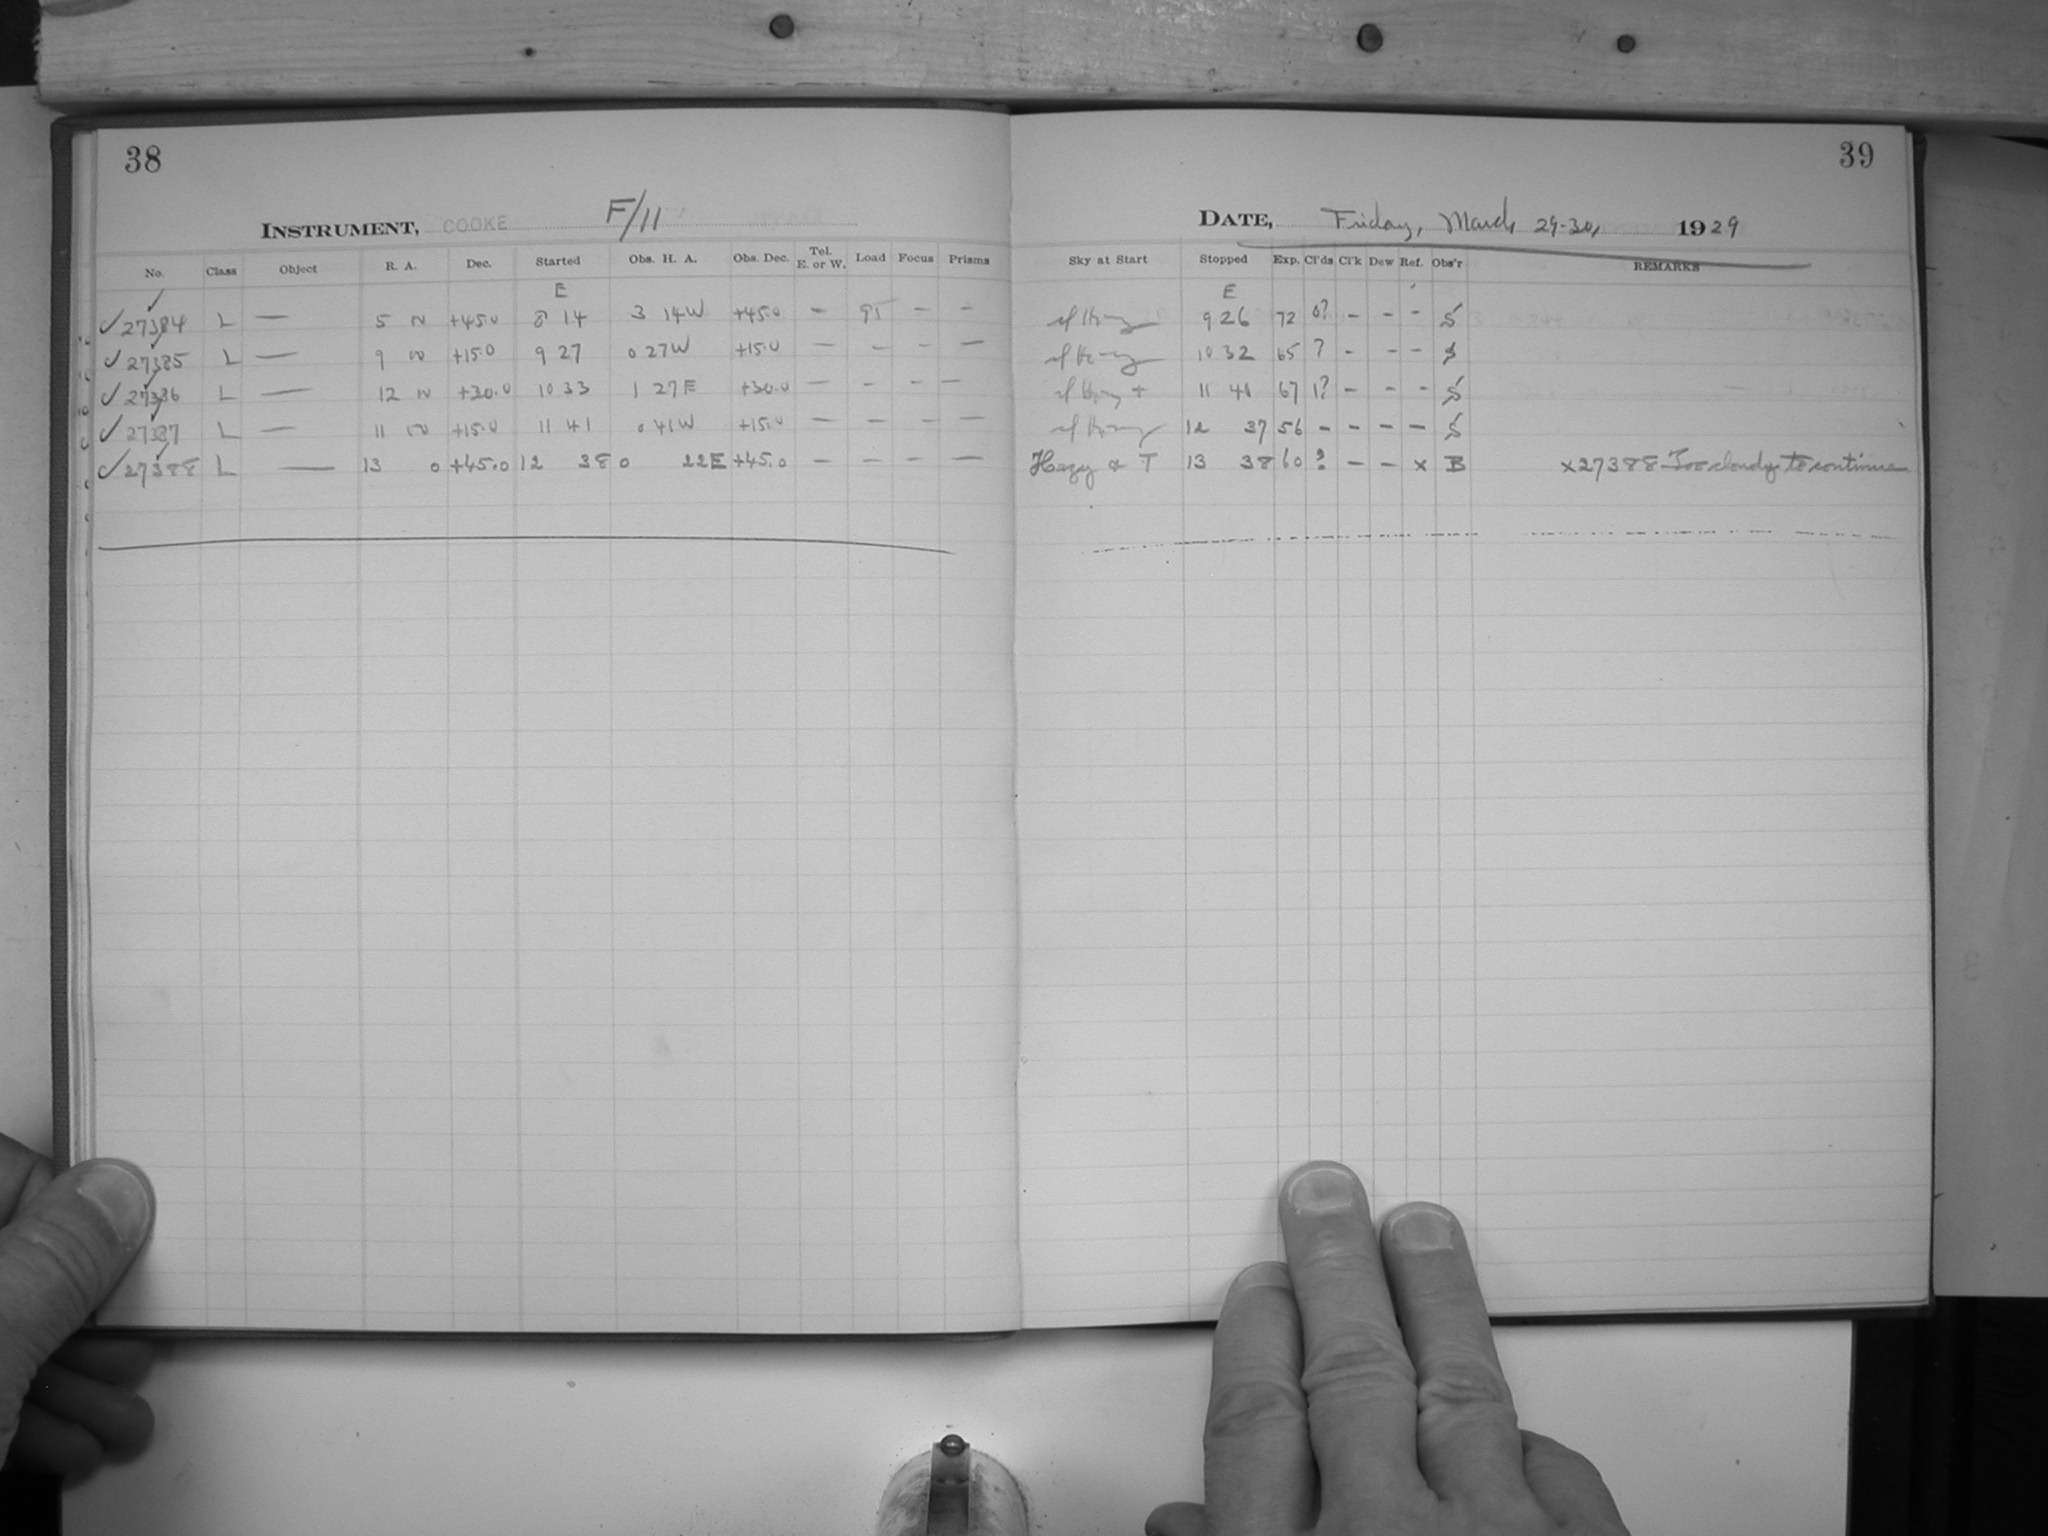 38
39
INSTRUMENT, COOKE F/11
DATE, Friday, March 29-30, 1929
No. Class Object R. A. Dec. Started Obs. H. A. Obs. Dec. Tel. E. or W. Load Focus Prisms Sky at Start Stopped Exp. Cl'ds Cl'k Dew Ref. Obs'r REMARKS
E E
✓ 27384 L — 5 +45.0 8 14 3 14W +45.0 — 95 — — 9 26 72 0? - - - S
✓ 27385 L — 9 +15.0 9 27 0 27W +15.0 — — — — 10 32 65 ? - - - S
✓ 27386 L — 12 +30.0 10 33 1 27E +30.0 — - - — 11 40 67 1? - - - S
✓ 27387 L — 11 +15.0 11 41 0 41W +15.0 — — — — 12 37 56 - - - - S
✓ 27388 L — 13 0 +45.0 12 38 0 22E +45.0 — — — — Hazy & T 13 38 60 ? - - x B x27388 Too cloudy to continue